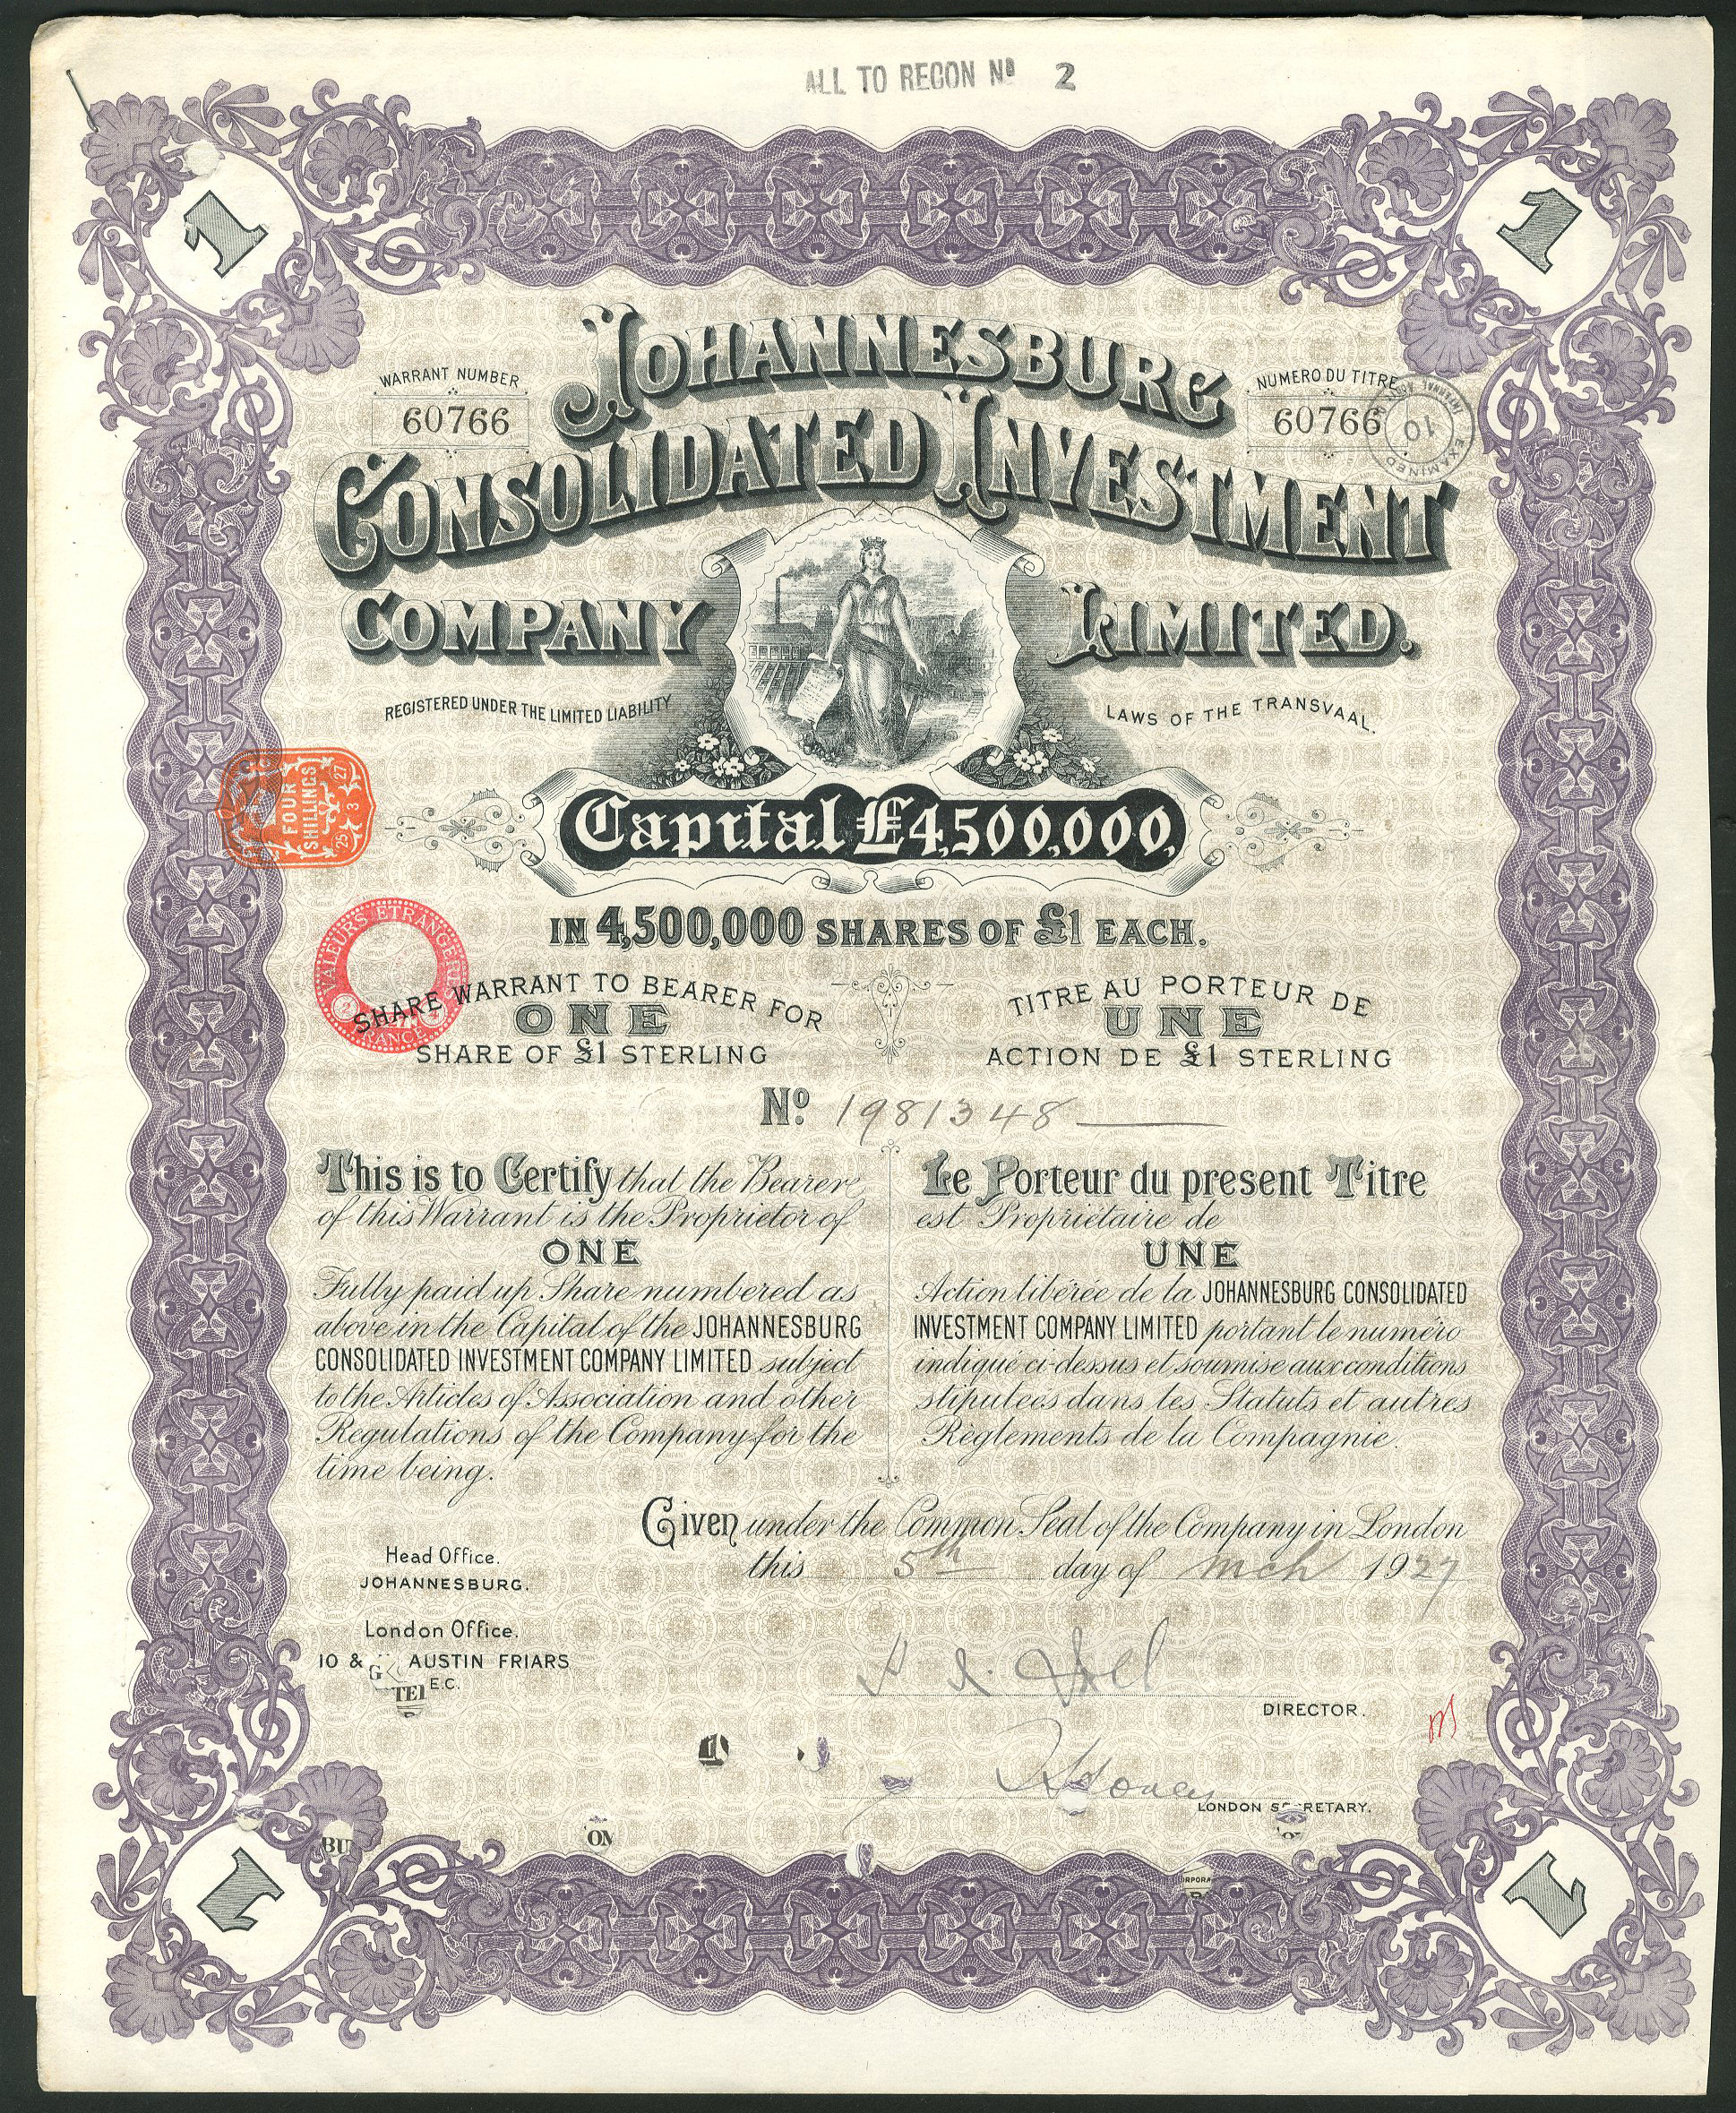 ALL TO RECON Nº 2
1
1
WARRANT NUMBER
60766
NUMERO DU TITRE
60766
10
EXAMINED
JOHANNESBURG
CONSOLIDATED INVESTMENT
COMPANY LIMITED.
REGISTERED UNDER THE LIMITED LIABILITY LAWS OF THE TRANSVAAL.
FOUR SHILLINGS
25 3 27
Capital £4,500,000,
IN 4,500,000 SHARES OF £1 EACH.
VALEURS ETRANGERES
SHARE WARRANT TO BEARER FOR
ONE
SHARE OF £1 STERLING
TITRE AU PORTEUR DE
UNE
ACTION DE £1 STERLING
Nº 1981348
This is to Certify that the Bearer
of this Warrant is the Proprietor of
ONE
Fully paid up Share numbered as
above in the Capital of the JOHANNESBURG
CONSOLIDATED INVESTMENT COMPANY LIMITED subject
to the Articles of Association and other
Regulations of the Company for the
time being.
Le Porteur du present Titre
est Propriétaire de
UNE
Action libérée de la JOHANNESBURG CONSOLIDATED
INVESTMENT COMPANY LIMITED portant le numéro
indiqué ci-dessus et soumise aux conditions
stipulées dans les Statuts et autres
Règlements de la Compagnie.
Given under the Common Seal of the Company in London
this 5th day of Mch 1927
Head Office.
JOHANNESBURG.
London Office.
10 & AUSTIN FRIARS
E.C.
DIRECTOR.
LONDON SE RETARY.
1
1